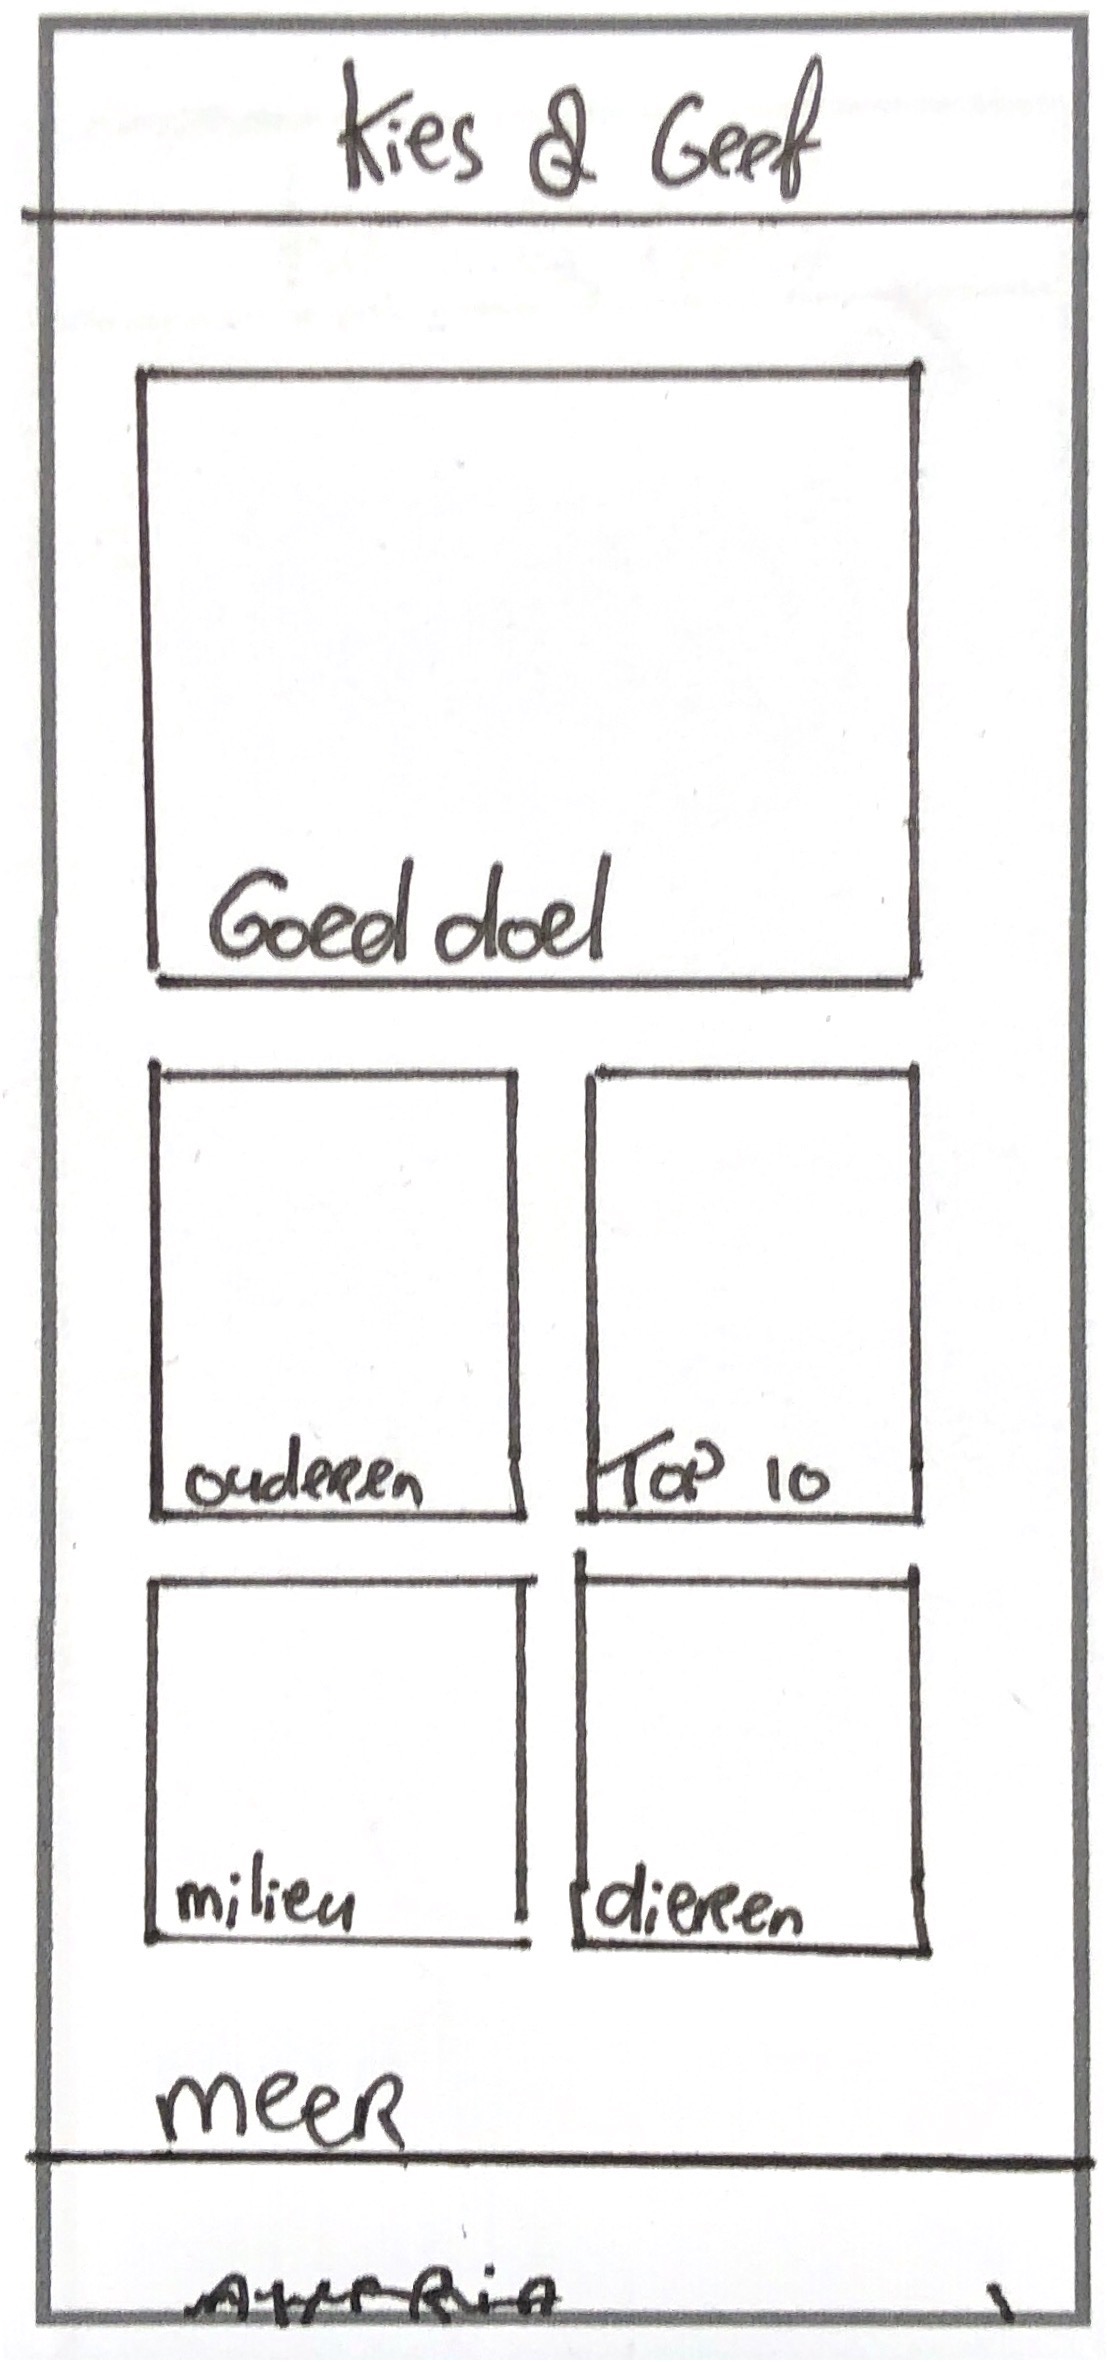 Kies & Geef
Goed doel
ouderen
Top 10
milieu
dieren
meer